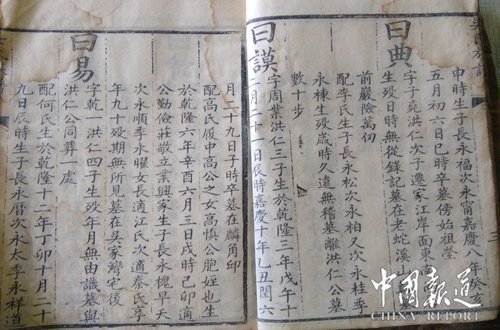 申時生子長永福次永甯嘉慶八年癸亥
五月初六日巳時卒墓傍始祖塋
曰典
字子堯洪仁次子遷家江岸面東
生歿日時無從錄記墓在老蛇溪山
前巖險萬仞
配李氏生子長永松次永柏又次永桂季
永棟生歿歲時久遠無稽墓離洪仁公墓
數十步
曰謨
字周業洪仁三子生於乾隆三年戊午十
二月二十一日辰時嘉慶十年乙丑閏六
月二十九日子時卒墓在麟角邱
配高氏履中高公之女高慎公胞姪也生
於乾隆六年辛酉六月三日戌時己卯適
公勤儉莊敬立業興家生子長永槐早天
次永順季永曜女長適江氏次適秦氏享
年九十歿期無所見墓在吳家灣宅後
曰易
字乾一洪仁四子生歿年月無由識墓與
洪仁公同塋一處
配何氏生於乾隆十二年丁卯十月二十
九日辰時生子長永曆次永太季永祥道
中國報道
CHINA REPORT